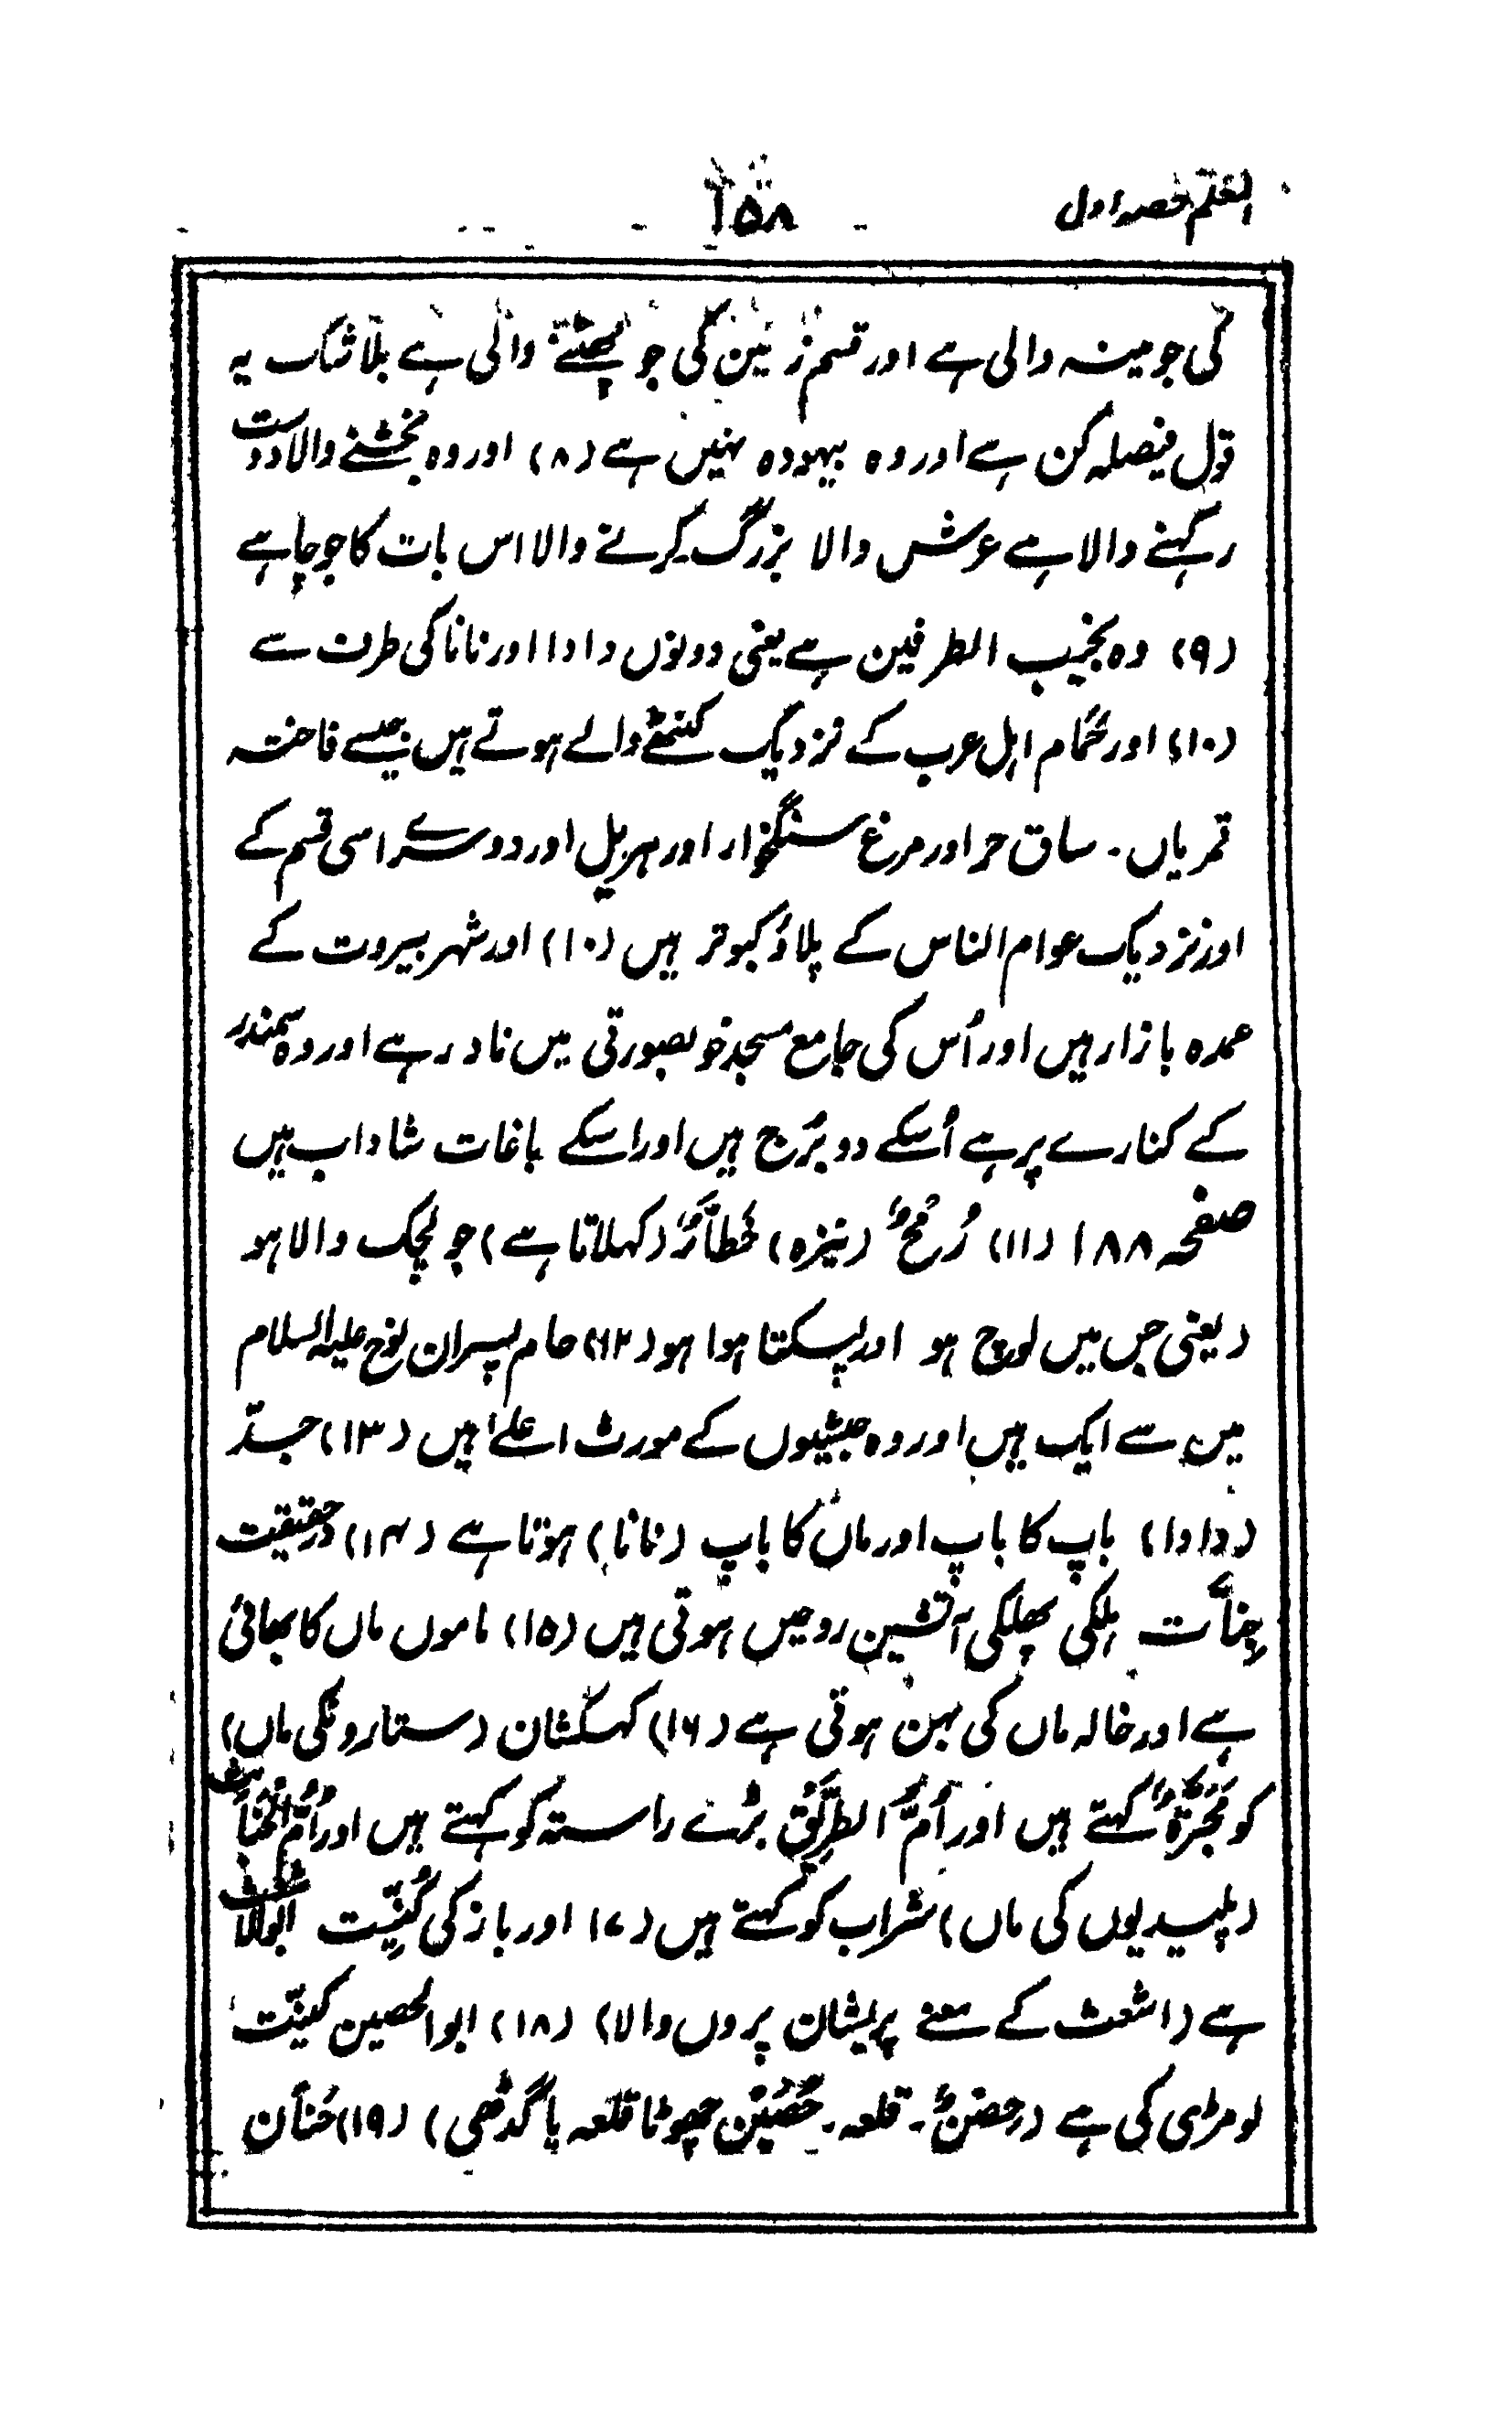 المعلم حصہ اول
۱۵۸
کی جو مینہ والی ہے اور قسم زمین کی جو پھٹنے والی ہے بلاشک یہ
قول فیصلہ کن ہے اور وہ بیہودہ نہیں ہے (۸) اور وہ بخشنے والا دوست
رکہنے والا ہے عرش والا بزرگ کرنے والا اس بات کا جو چاہے
(۹) وہ نجیب الطرفین ہے یعنی دونوں دادا اور نانا کی طرف سے
(۱۰) اور حَمام اہل عرب کے نزدیک کنٹھے والے ہوتے ہیں جیسے فاختہ
قمریاں ۔ ساق حر اور مرغ سنگخوار اور ہریل اور دوسرے اسی قسم کے
اور نزدیک عوام الناس کے پلاؤ کبوتر ہیں (۱۰) اور شہر بیروت کے
عمدہ بازار ہیں اور اُس کی جامع مسجد خوبصورتی میں نادر ہے اور وہ سمندر
کے کنارے پر ہے اُسکے دو بُرج ہیں اور اسکے باغات شاداب ہیں
صفحہ ۱۸۸ (۱۱) رُمْحٌ (نیزہ) خَطَّارٌ (کہلاتا ہے) جو لچک والا ہو
(یعنی جس میں لوچ ہو اور لپکتا ہوا ہو (۱۲) حام پسران نوح علیہ السلام
میں سے ایک ہیں اور وہ حبشیوں کے مورث اعلےٰ ہیں (۱۳) جدّ
(دادا) باپ کا باپ اور ماں کا باپ (نانا) ہوتا ہے (۱۴) درحقیقت
جِنّات ہلکی پھلکی آتشین روحیں ہوتی ہیں (۱۵) ماموں ماں کا بھائی
ہے اور خالہ ماں کی بہن ہوتی ہے (۱۶) کہکشان (ستارونکی ماں)
کو مَجَرَّۃٌ کہتے ہیں اور اُمُّ الطَّرِیْقِ بڑے راستہ کو کہتے ہیں اور اُمُّ الخَبَائث
(پلیدیوں کی ماں) شراب کو کہتے ہیں (۱۷) اور باز کی کُنِیّت ابوالاشعث
ہے (اشعث کے معنے پریشان پروں والا) (۱۸) ابوالحصین کنیّت
لومڑی کی ہے (حِصْنٌ ۔ قلعہ ۔ حُصَیْن چھوٹا قلعہ یا گڈھی) (۱۹) حَنّان